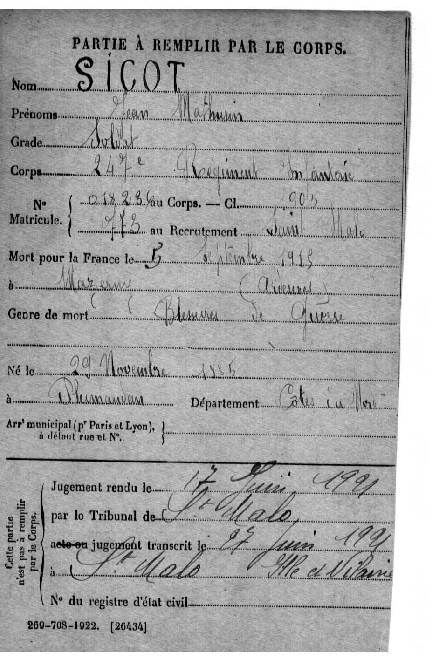 PARTIE À REMPLIR PAR LE CORPS.
Nom SICOT
Prénoms Jean Mathurin
Grade Soldat
Corps 247e Régiment Infanterie
N° 018236 au Corps. — Cl. 1905
Matricule. 773 au Recrutement Saint Malo
Mort pour la France le 5 Septembre 1915
à (Ardennes)
Genre de mort Blessures de Guerre
Né le 29 Novembre
à Département Côtes du Nord
Arrt municipal (pr Paris et Lyon),
à défaut rue et N°.
Cette partie
n'est pas à remplir
par le Corps.
Jugement rendu le 17 Juin 1921
par le Tribunal de St Malo,
acte ou jugement transcrit le 27 juin 1921
à St Malo Ille et Vilaine
N° du registre d'état civil
269-708-1922. [26434]